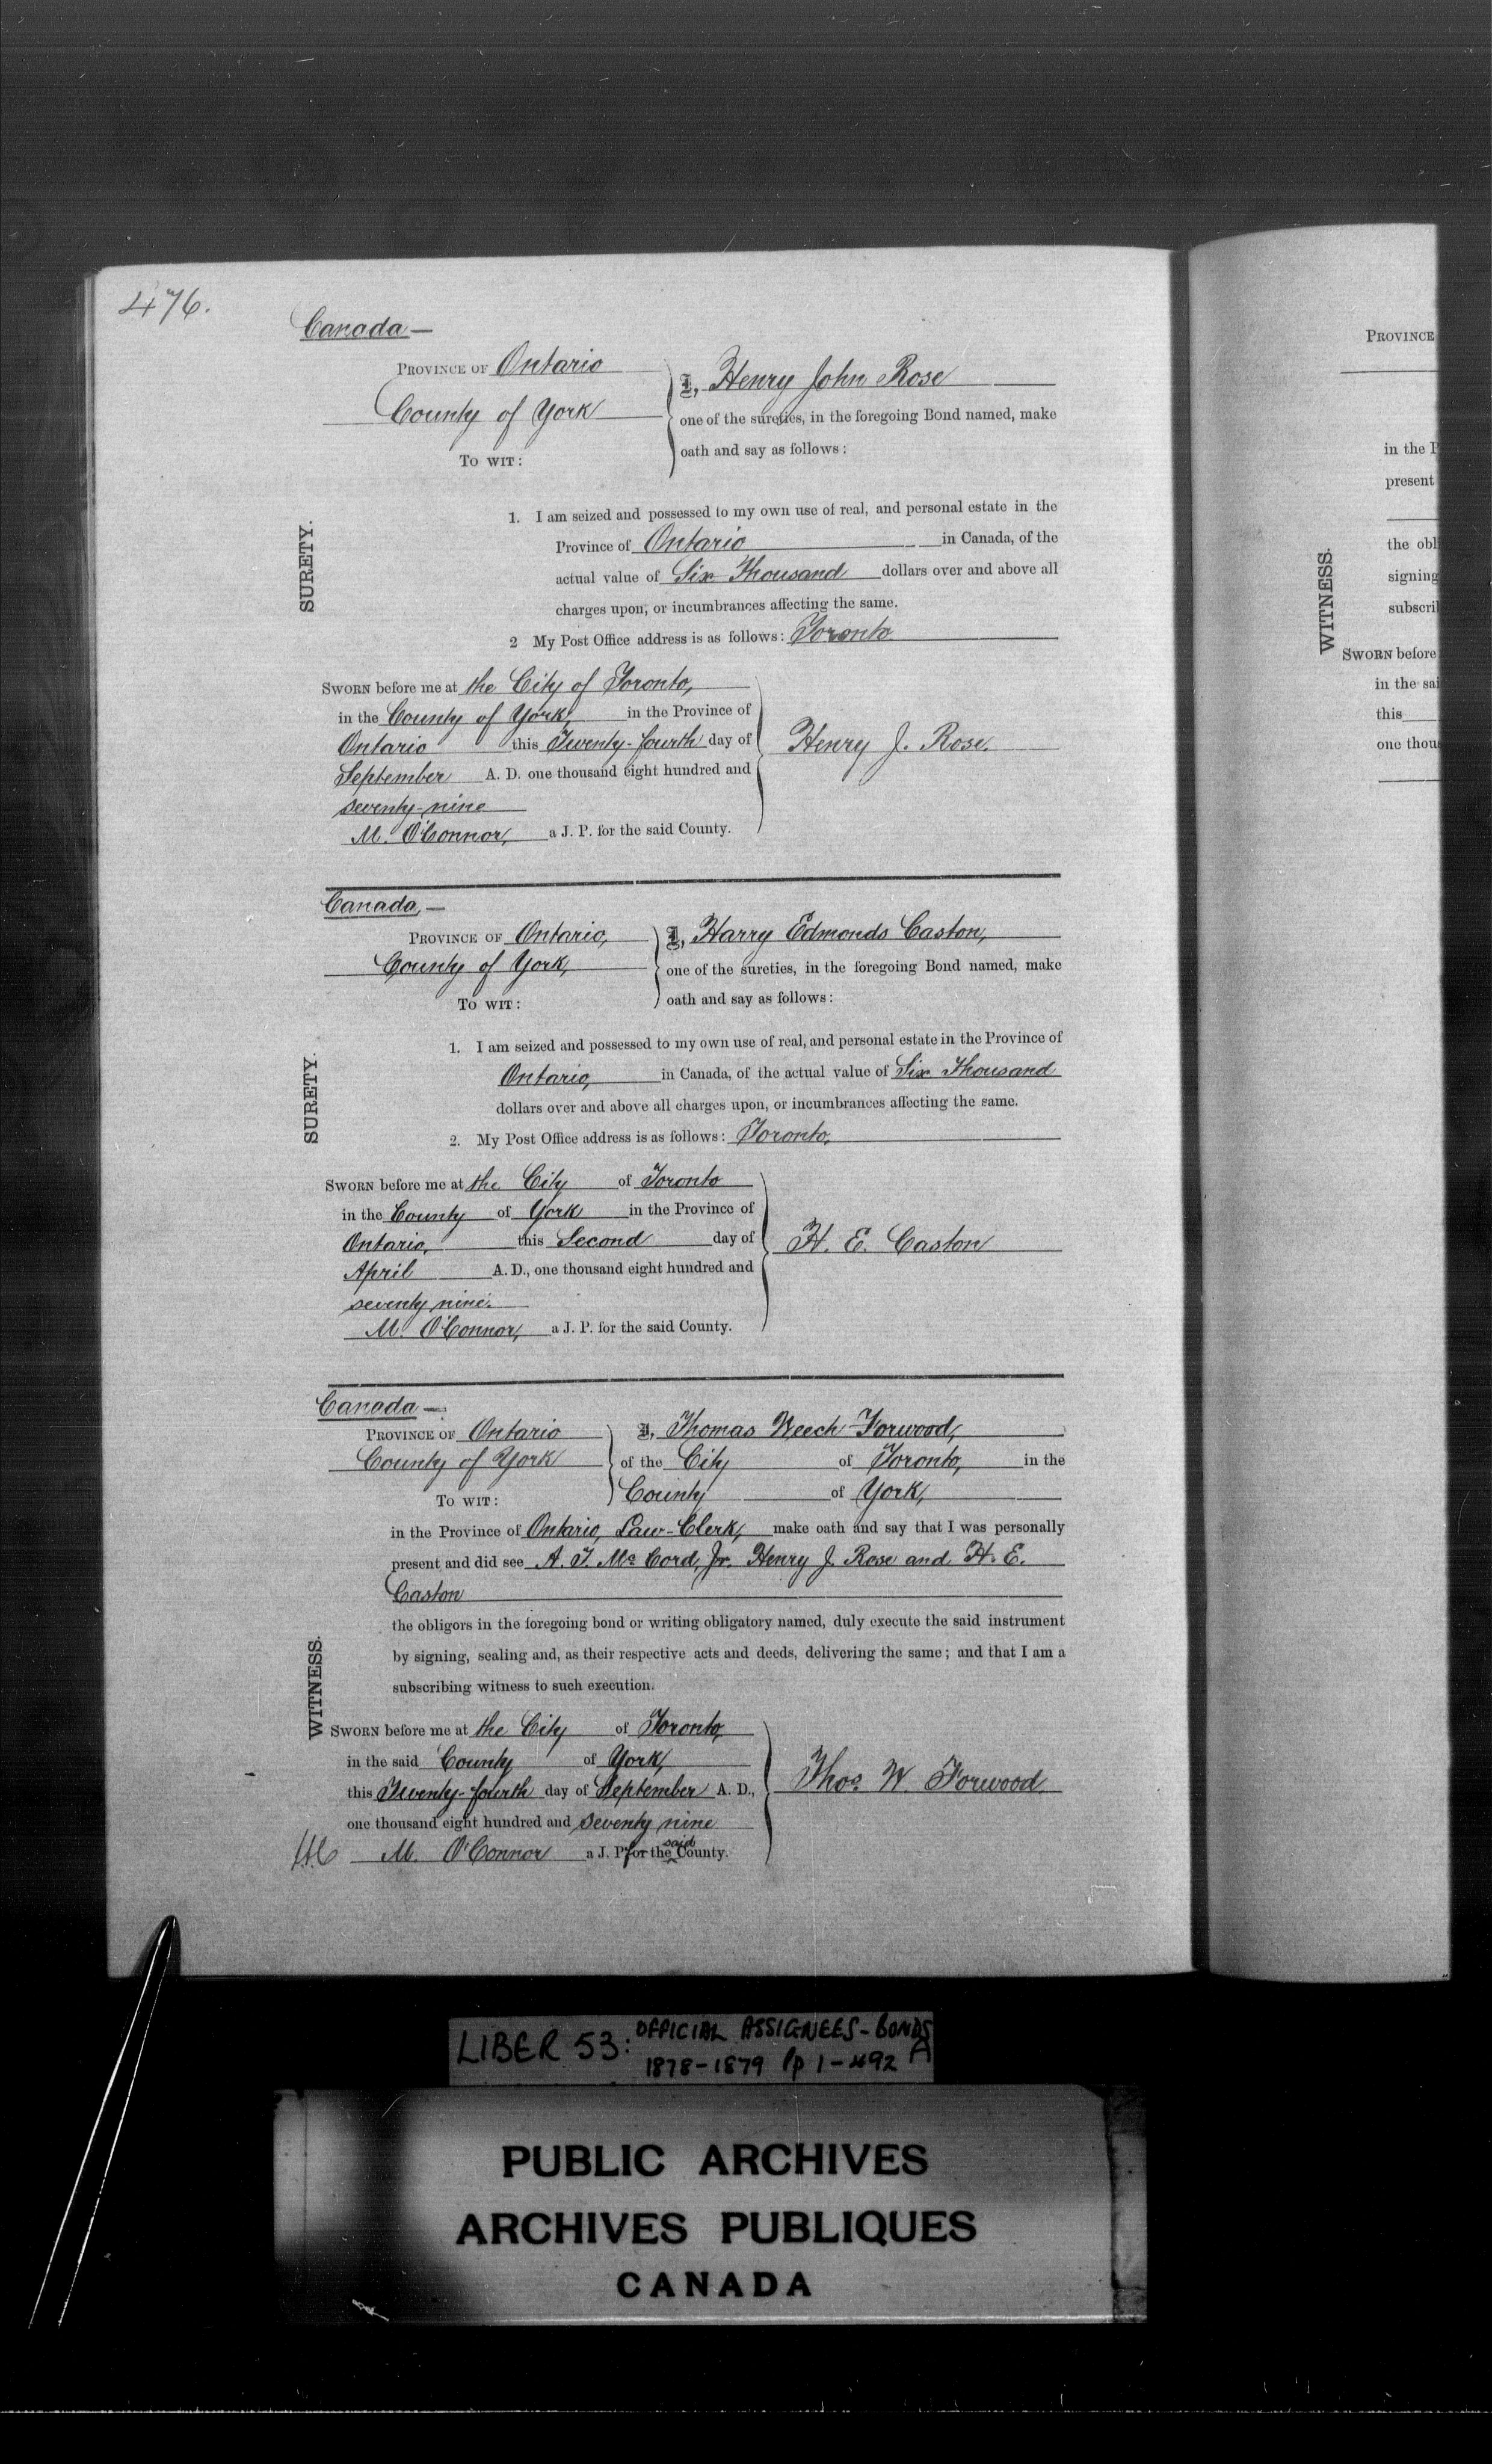 476.
Canada —
PROVINCE OF Ontario
County of York
TO WIT:
I, Henry John Rose
one of the sureties, in the foregoing Bond named, make
oath and say as follows:
SURETY.
1. I am seized and possessed to my own use of real, and personal estate in the
Province of Ontario in Canada, of the
actual value of Six Thousand dollars over and above all
charges upon, or incumbrances affecting the same.
2 My Post Office address is as follows: Toronto
SWORN before me at the City of Toronto,
in the County of York, in the Province of
Ontario this Twenty-fourth day of
September A. D. one thousand eight hundred and
seventy-nine
M. O'Connor, a J. P. for the said County.
Henry J. Rose.
Canada, —
PROVINCE OF Ontario,
County of York,
TO WIT:
I, Harry Edmonds Caston,
one of the sureties, in the foregoing Bond named, make
oath and say as follows:
SURETY.
1. I am seized and possessed to my own use of real, and personal estate in the Province of
Ontario, in Canada, of the actual value of Six Thousand
dollars over and above all charges upon, or incumbrances affecting the same.
2. My Post Office address is as follows: Toronto,
SWORN before me at the City of Toronto
in the County of York in the Province of
Ontario, this Second day of
April A. D., one thousand eight hundred and
seventy nine.
M. O'Connor, a J. P. for the said County.
H. E. Caston
Canada —
PROVINCE OF Ontario
County of York
TO WIT:
I, Thomas Weech Forwood,
of the City of Toronto, in the
County of York,
in the Province of Ontario, Law-Clerk, make oath and say that I was personally
present and did see A. T. Mc Cord, Jr. Henry J. Rose and H. E.
Caston
the obligors in the foregoing bond or writing obligatory named, duly execute the said instrument
by signing, sealing and, as their respective acts and deeds, delivering the same; and that I am a
subscribing witness to such execution.
WITNESS.
SWORN before me at the City of Toronto,
in the said County of York,
this Twenty-fourth day of September A. D.,
one thousand eight hundred and seventy nine
M. O'Connor a J. P. for the said County.
Thos. W. Forwood
PROVINCE
in the P
present
the obl
signing
subscri
WITNESS.
SWORN before
in the sai
this
one thou
LIBER 53: OFFICIAL ASSIGNEES - BONDS
1878-1879 Pp 1-492 A
PUBLIC ARCHIVES
ARCHIVES PUBLIQUES
CANADA